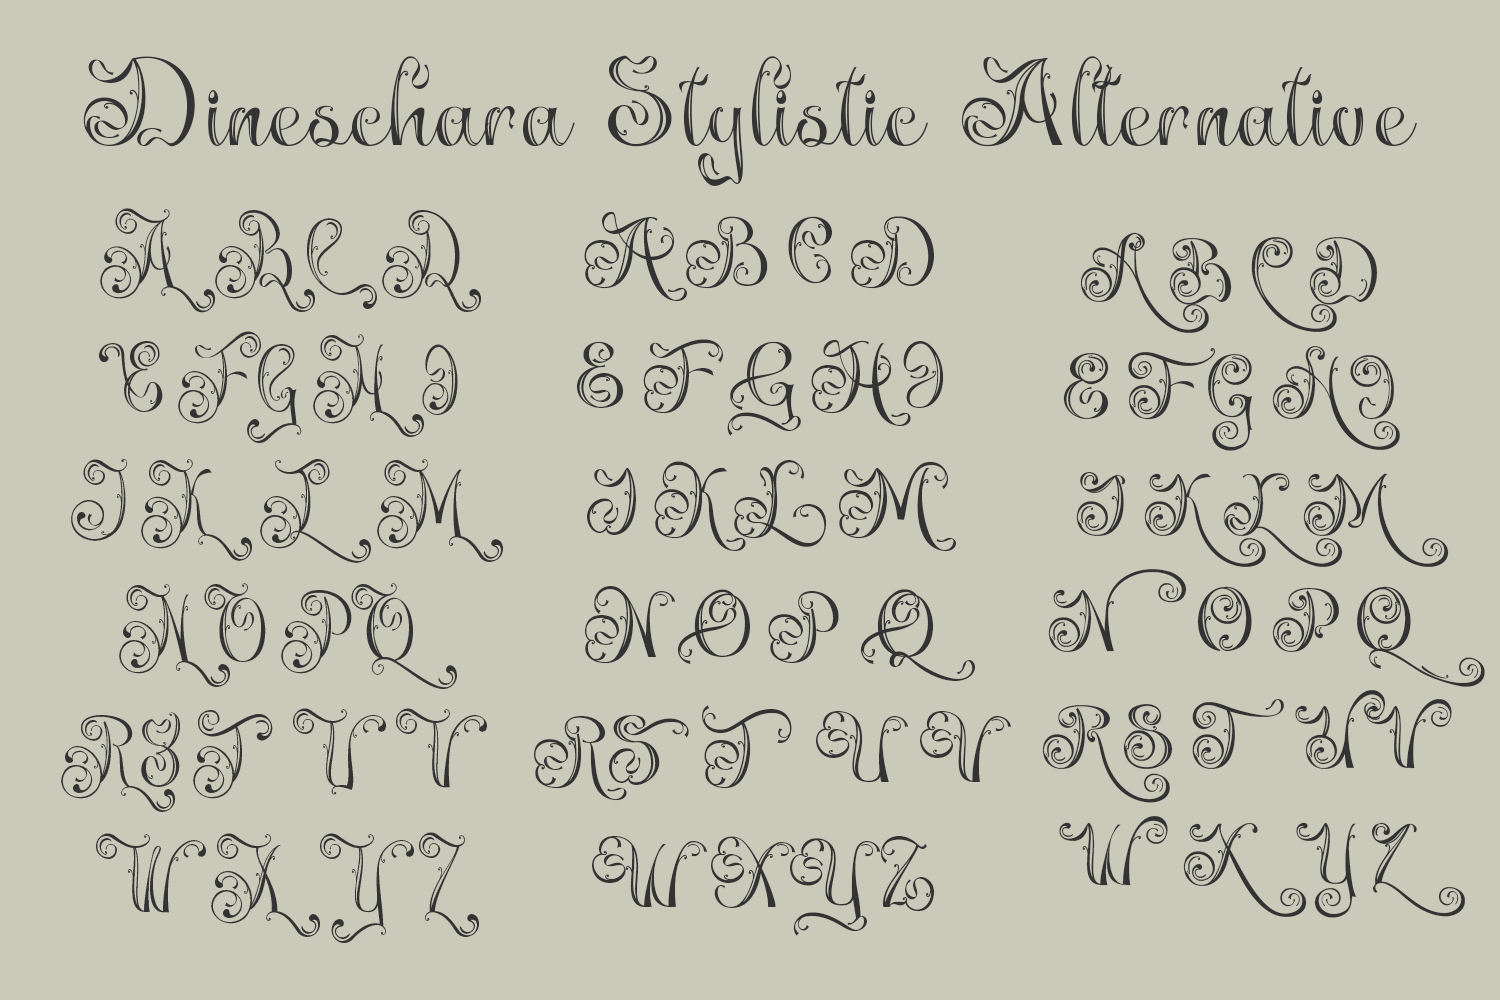 Dineschara Stylistic Alternative
A B C D
E F G H I
J K L M
N O P Q
R S T U V
W X Y Z
A B C D
E F G H I
J K L M
N O P Q
R S T U V
W X Y Z
A B C D
E F G H I
J K L M
N O P Q
R S T U V
W X Y Z